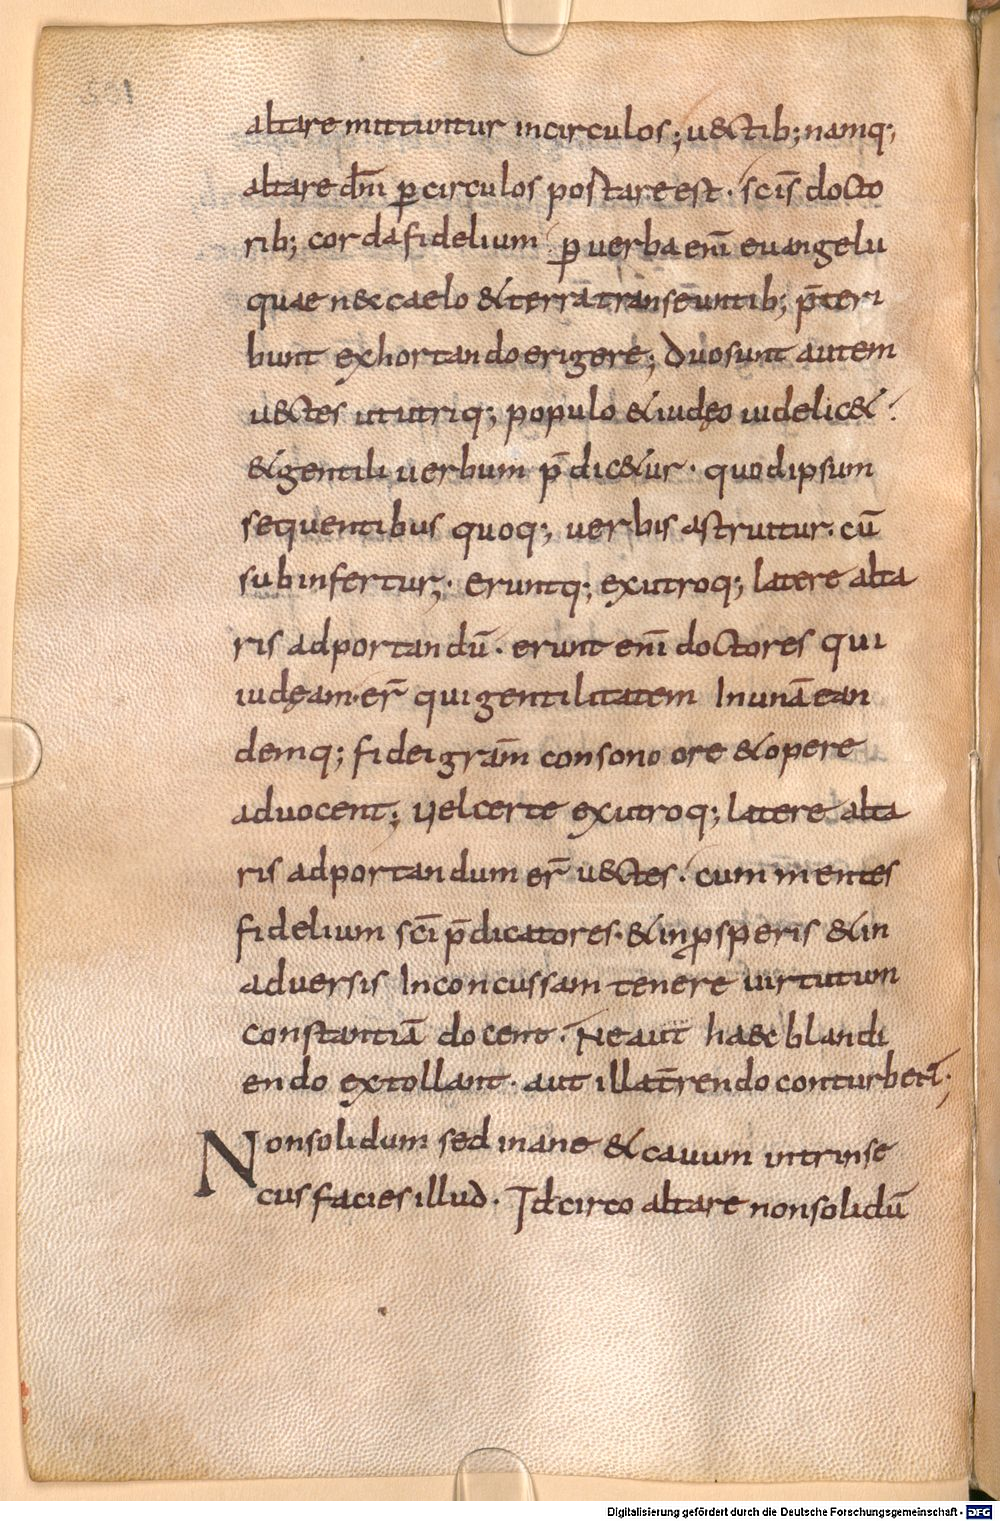 altare mittuntur incirculos; u&ctib; namq;
altare dn̄i ꝑ circulos postare est · scīs docto
rib; corda fidelium ꝑ uerba enī euangelii
quae n& caelo & terrā transeūntib; p̄teri
bunt exhortando erigere; duo sunt autem
u&ctes ut utriq; populo & iudęo uidelic&
& gentili uerbum p̄dic&ur · quod ipsum
sequentibus quoq; uerbis astruitur · cū
subinfertur; · eruntq; ex utroq; latere alta
ris adportandū · erunt enī doctores qui
iudęam · er̄ qui gentilitatem In unā ean
demq; fidei gram̄ consono ore & opere
aduocent; uel certe ex utroq; latere alta
ris adportandum er̄ u&ctes · cum mentes
fidelium scī p̄dicatores · & in ꝓsperis & in
aduersis Inconcussam tenere uirtutum
constantiā docent · Ne aut ha&c blandi
endo extollant · aut illa t̄rendo conturbent̄;
Non solidum sed inane & cauum intrinse
cus facies illud · Idcirco altare non solidū
Digitalisierung gefördert durch die Deutsche Forschungsgemeinschaft - DFG